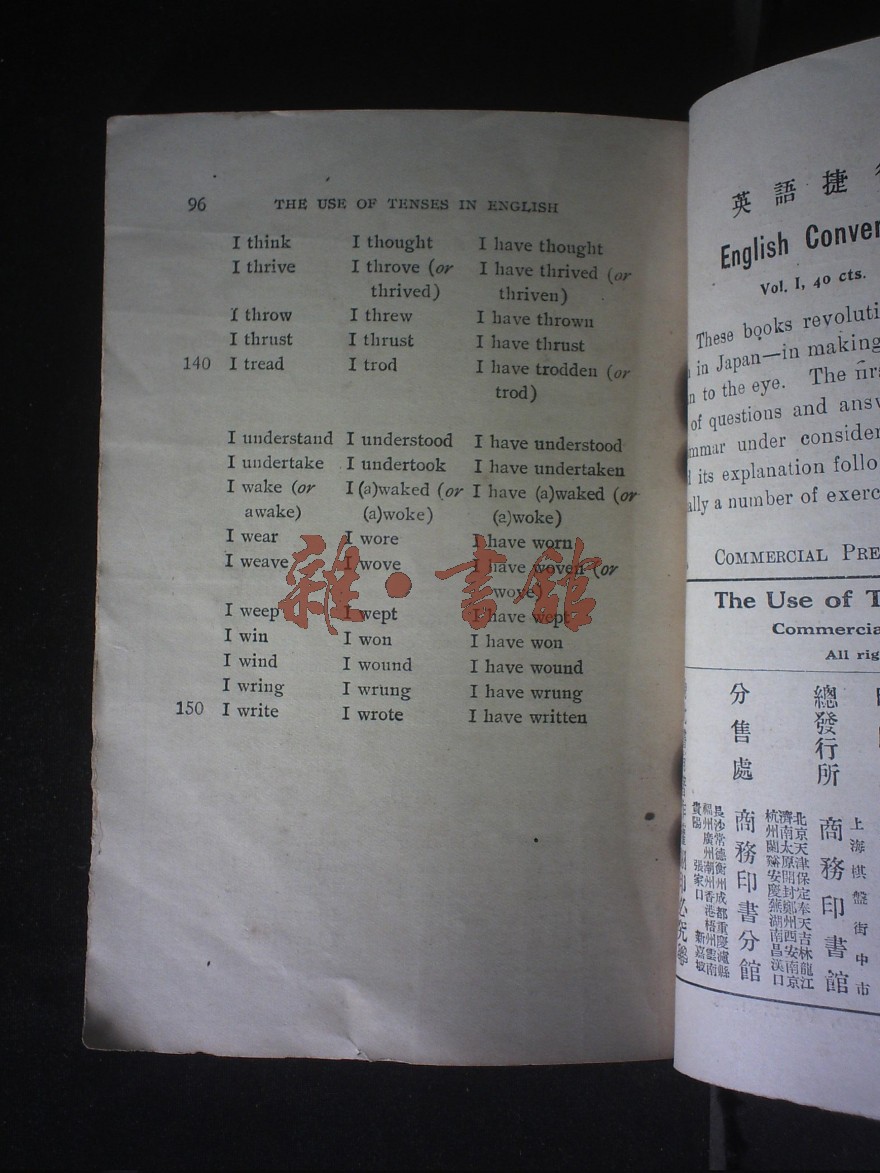 96 THE USE OF TENSES IN ENGLISH
I think I thought I have thought
I thrive I throve (or I have thrived (or
thrived) thriven)
I throw I threw I have thrown
I thrust I thrust I have thrust
140 I tread I trod I have trodden (or
trod)
I understand I understood I have understood
I undertake I undertook I have undertaken
I wake (or I (a)waked (or I have (a)waked (or
awake) (a)woke) (a)woke)
I wear I wore I have worn
I weave I wove I have woven (or
wove)
I weep I wept I have wept
I win I won I have won
I wind I wound I have wound
I wring I wrung I have wrung
150 I write I wrote I have written
雜·書館
英語捷
English Conver
Vol. I, 40 cts.
These books revoluti
in Japan—in making
n to the eye. The firs
of questions and answ
mmar under consider
its explanation follo
ally a number of exerc
COMMERCIAL PRE
The Use of T
Commercia
All rig
上海棋盤街中市
總發行所
商務印書館
北京天津保定奉天吉林龍江
濟南太原開封鄭州西安南京
杭州蘭谿安慶蕪湖南昌漢口
分售處
商務印書分館
長沙常德衡州成都重慶瀘縣
福州廣州潮州香港梧州雲南
貴陽 張家口 新嘉坡